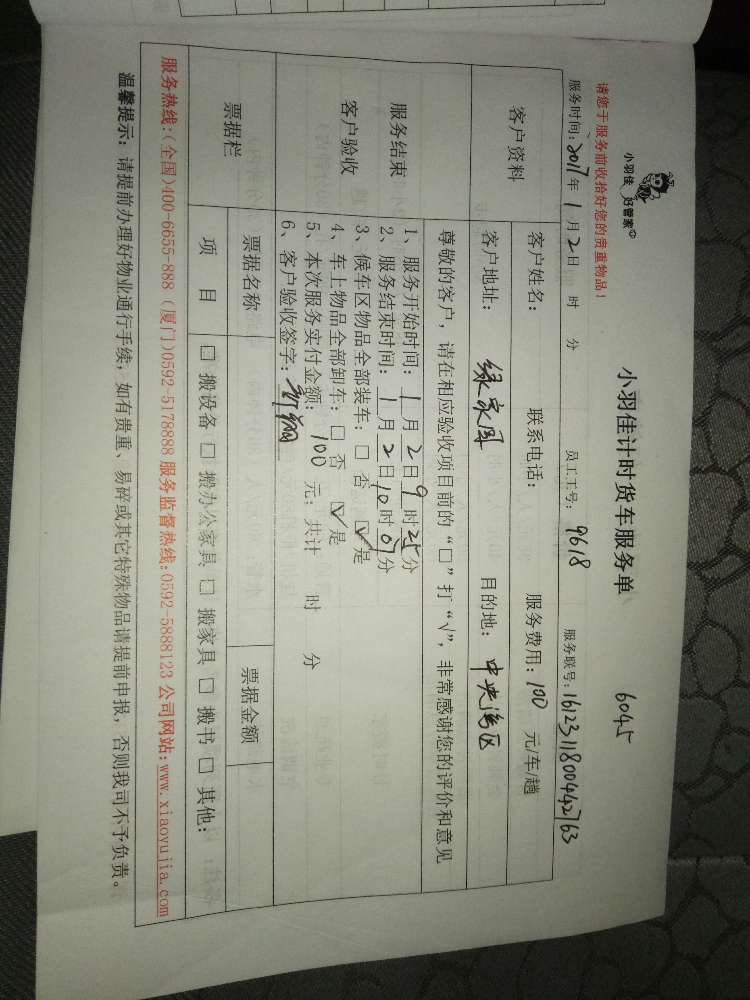 小羽佳 好管家
小羽佳计时货车服务单
6045
请您于服务前收拾好您的贵重物品！
服务时间：2017年1月2日 时 分 员工工号：9618 服务联号：1612311800442763
客户资料
客户姓名： 联系电话： 服务费用：100 元/车/趟
客户地址：绿家园 目的地：中央湾区
服务结束
客户验收
尊敬的客户，请在相应验收项目前的“□”打“√”，非常感谢您的评价和意见
1、服务开始时间：1月2日9时25分
2、服务结束时间：1月2日10时07分
3、候车区物品全部装车：□ 否 ☑ 是
4、车上物品全部卸车：□ 否 ☑ 是
5、本次服务实付金额：100 元；共计 时 分
6、客户验收签字：
票据栏
票据名称 票据金额
项 目 □ 搬设备 □ 搬办公家具 □ 搬家具 □ 搬书 □ 其他：
服务热线：（全国）400-6655-888（厦门）0592-5178888 服务监督热线：0592-5888123 公司网站：www.xiaoyujia.com
温馨提示：请提前办理好物业通行手续，如有贵重、易碎或其它特殊物品请提前申报，否则我司不予负责。